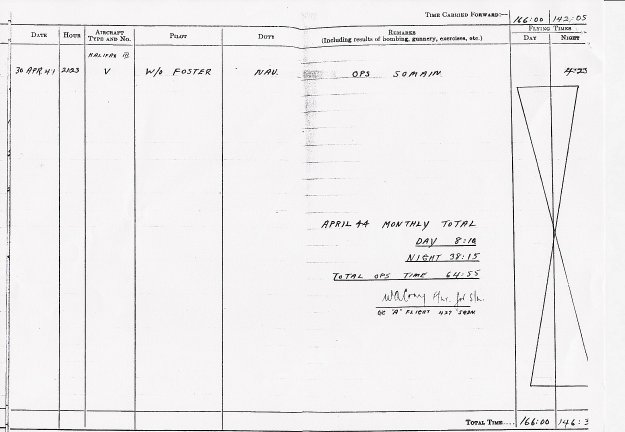 TIME CARRIED FORWARD:— 166:00 142:05
DATE HOUR AIRCRAFT TYPE AND NO. PILOT DUTY REMARKS (Including results of bombing, gunnery, exercises, etc.) FLYING TIMES DAY NIGHT
HALIFAX III
30 APR 44 2123 V W/O FOSTER NAV. OPS SOMAIN 4:25
APRIL 44 MONTHLY TOTAL
DAY 8:10
NIGHT 38:15
TOTAL OPS TIME 64:55
for S/L.
OC "A" FLIGHT 427 SQDN
TOTAL TIME.... 166:00 146:3